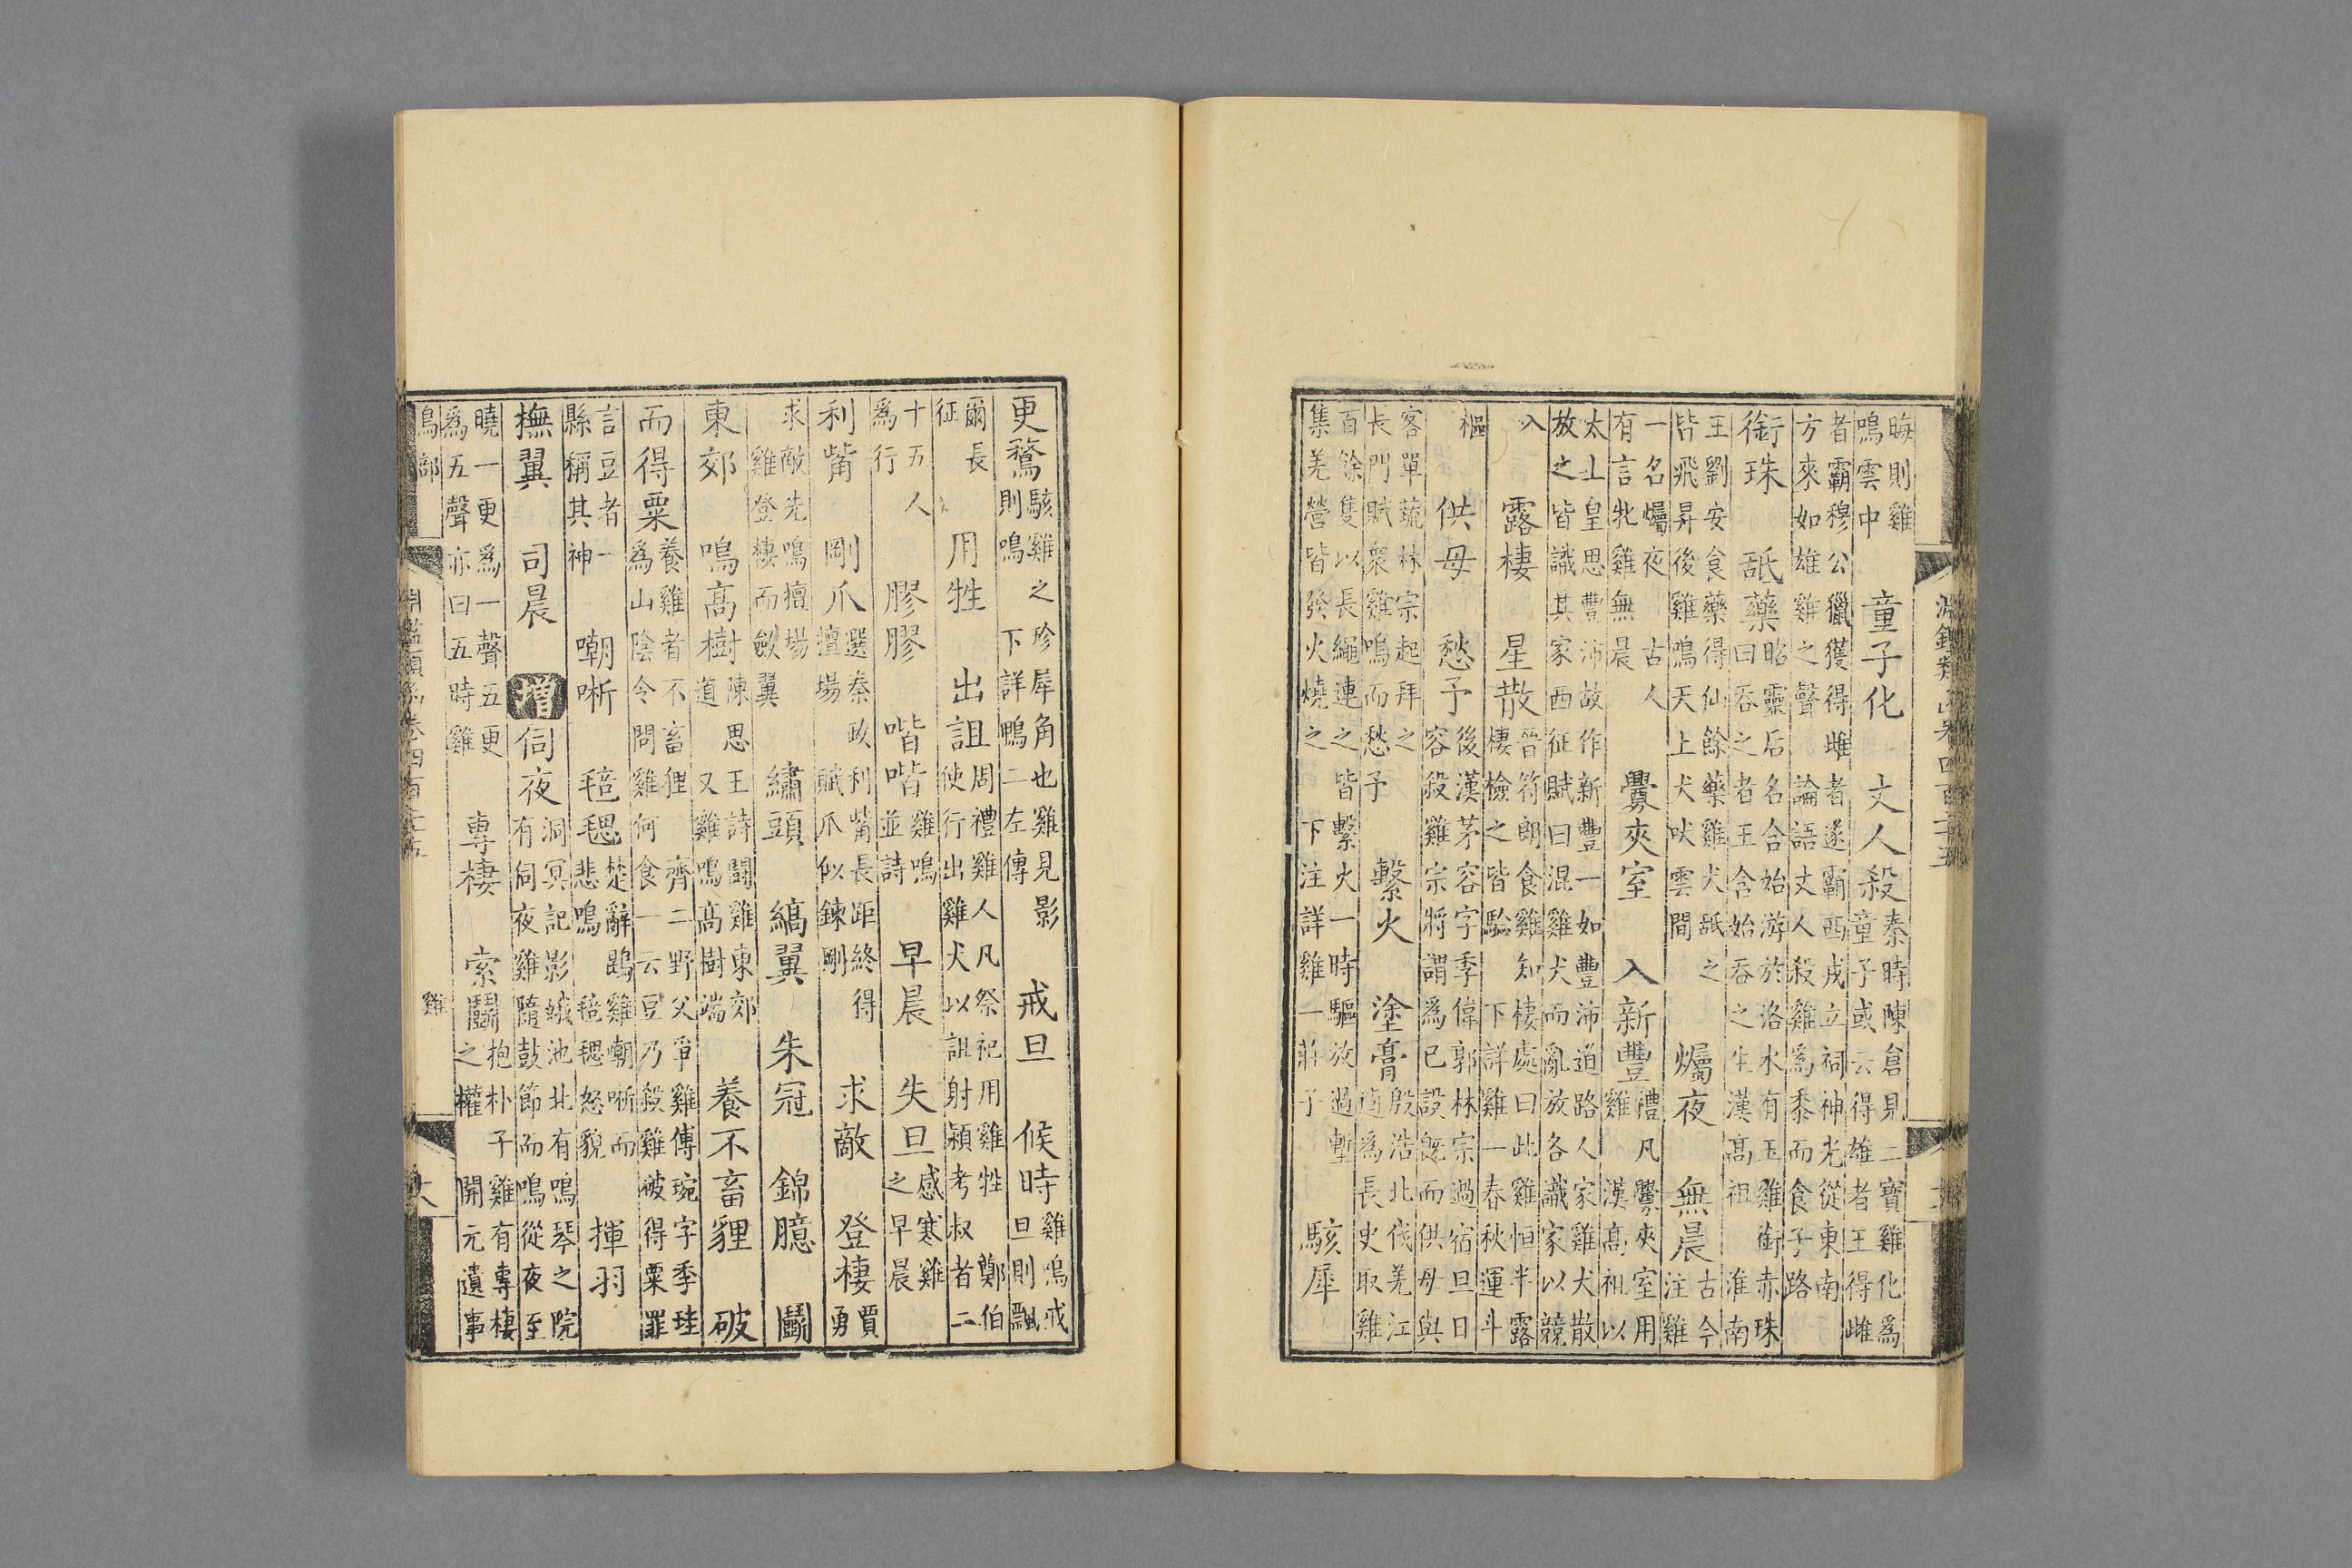 淵鑑類函卷四百二十五
晦則雞鳴雲中 童子化 丈人殺 秦時陳倉見二寶雞化爲童子或云得雄者王得雌
者霸穆公獵獲得雌者遂霸西戎立祠神光從東南方來如雄雞之聲 論語丈人殺雞爲黍而食子路
銜珠 舐藥 昭靈后名含始游於洛水有玉雞銜赤珠曰吞之者王含始吞之生漢髙祖 淮南
王劉安食藥得仙餘藥雞犬舐之皆飛昇後雞鳴天上犬吠雲間 爥夜 無晨 古今注雞
一名爥夜 古人有言牝雞無晨 釁夾室 入新豐 禮凡釁夾室用雞 漢髙祖以
太上皇思豐沛故作新豐一如豐沛道路人家雞犬散放之皆識其家西征賦曰混雞犬而亂放各識家以競
入 露棲 星散 晉苻朗食雞知棲處曰此雞恒半露棲檢之皆驗 下詳雞一春秋運斗
樞 供母 愁予 後漢茅容字季偉郭林宗過宿旦日容殺雞宗將謂爲已設旣而供母與
客單蔬林宗起拜之 長門賦衆雞鳴而愁予 繫火 塗膏 殷浩北伐羌江逌爲長史取雞
百餘隻以長繩連之皆繫火一時驅放過塹集羌營皆發火燒之 下注詳雞一莊子 駭犀
更驁 駭雞之珍犀角也雞見影則鳴 下詳鴨二左傳 戒旦 候時 雞鳴戒旦則飄
爾長征 用牲 出詛 周禮雞人凡祭祀用雞牲 鄭伯使行出雞犬以詛射潁考叔者二
十五人爲行 膠膠 喈喈 雞鳴並詩 早晨 失旦 感寒雞之早晨
利觜 剛爪 選秦政利觜長距終得擅場 賦爪似鍊剛 求敵 登棲 賈勇
求敵先鳴擅場 雞登棲而斂翼 繡頭 縞翼 朱冠 錦臆 鬭
東郊 鳴髙樹 陳思王詩鬭雞東郊道 又雞鳴髙樹端 養不畜貍 破
而得粟 養雞者不畜狸 齊二野父爭雞傅琬字季珪爲山陰令問雞何食一云豆乃殺雞破得粟罪
言豆者一縣稱其神 嘲哳 毰毸 楚辭鵾雞嘲哳而悲鳴 毰毸怒貌 揮羽
撫翼 司晨 增 伺夜 洞冥記影娥池北有鳴琴之院有伺夜雞隨鼓節而鳴從夜至
曉一更爲一聲五更爲五聲亦曰五時雞 專棲 索鬭 抱朴子雞有專棲之權 開元遺事
鳥部 雞
淵鑑類函卷四百二十五